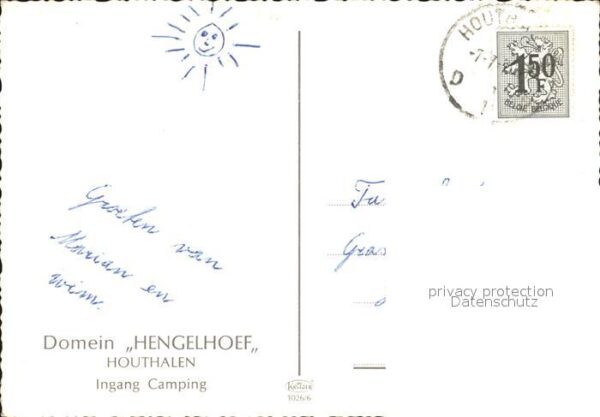 Groeten van
Marian en
Wim.
Domein „HENGELHOEF„
HOUTHALEN
Ingang Camping
1026/6
HOUTHA
D
1 50
F
BELGIE BELGIQUE
Fa
Gras
privacy protection
Datenschutz